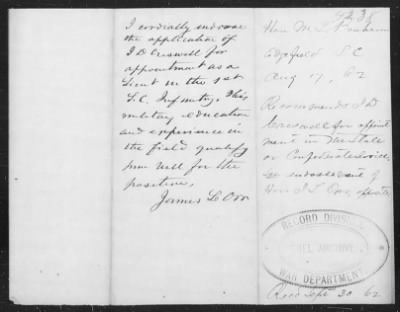 I cordially endorse
the application of
J D Creswell for
appointment as a
Lieut in the 1st
S.C. Infantry. His
military education
and experience in
the field qualify
him well for the
position.
James L Orr
Hon M. L. Bonham
Edgefield S C
Aug 17, 62
Recommends J D
Creswell for appoint
ment in the State
or Confederate service,
See endorsement of
Hon J L Orr, opposite
RECORD DIVISION
REBEL ARCHIVES
WAR DEPARTMENT
Recd Sept 30 62